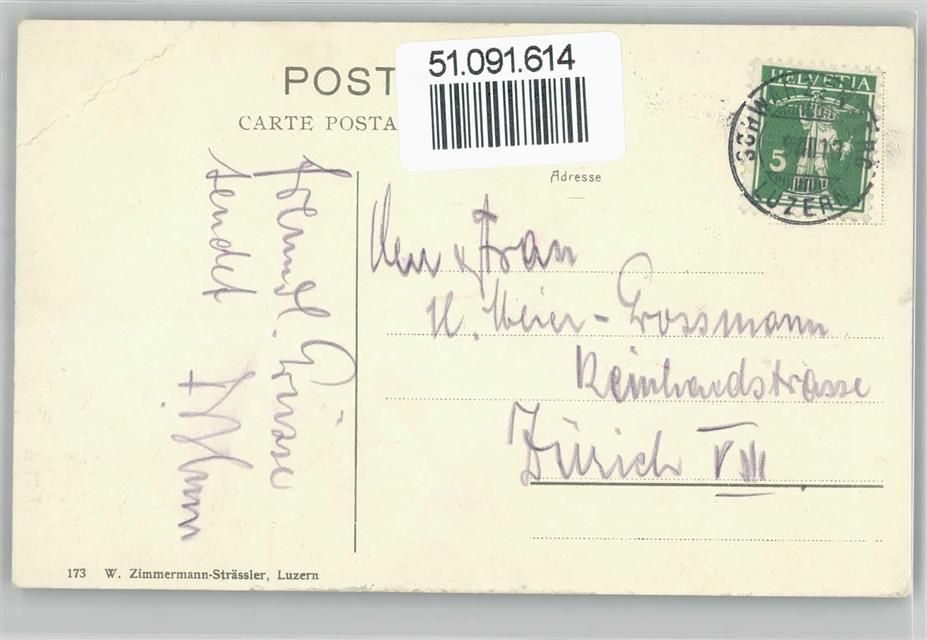 51.091.614
POST
CARTE POSTA
HELVETIA
5
LUZERN
Adresse
Freundl. Grüsse
sendet
Herr & Frau
H. Meier-Grossmann
Reinhardstrasse
Zürich VIII
173 W. Zimmermann-Strässler, Luzern